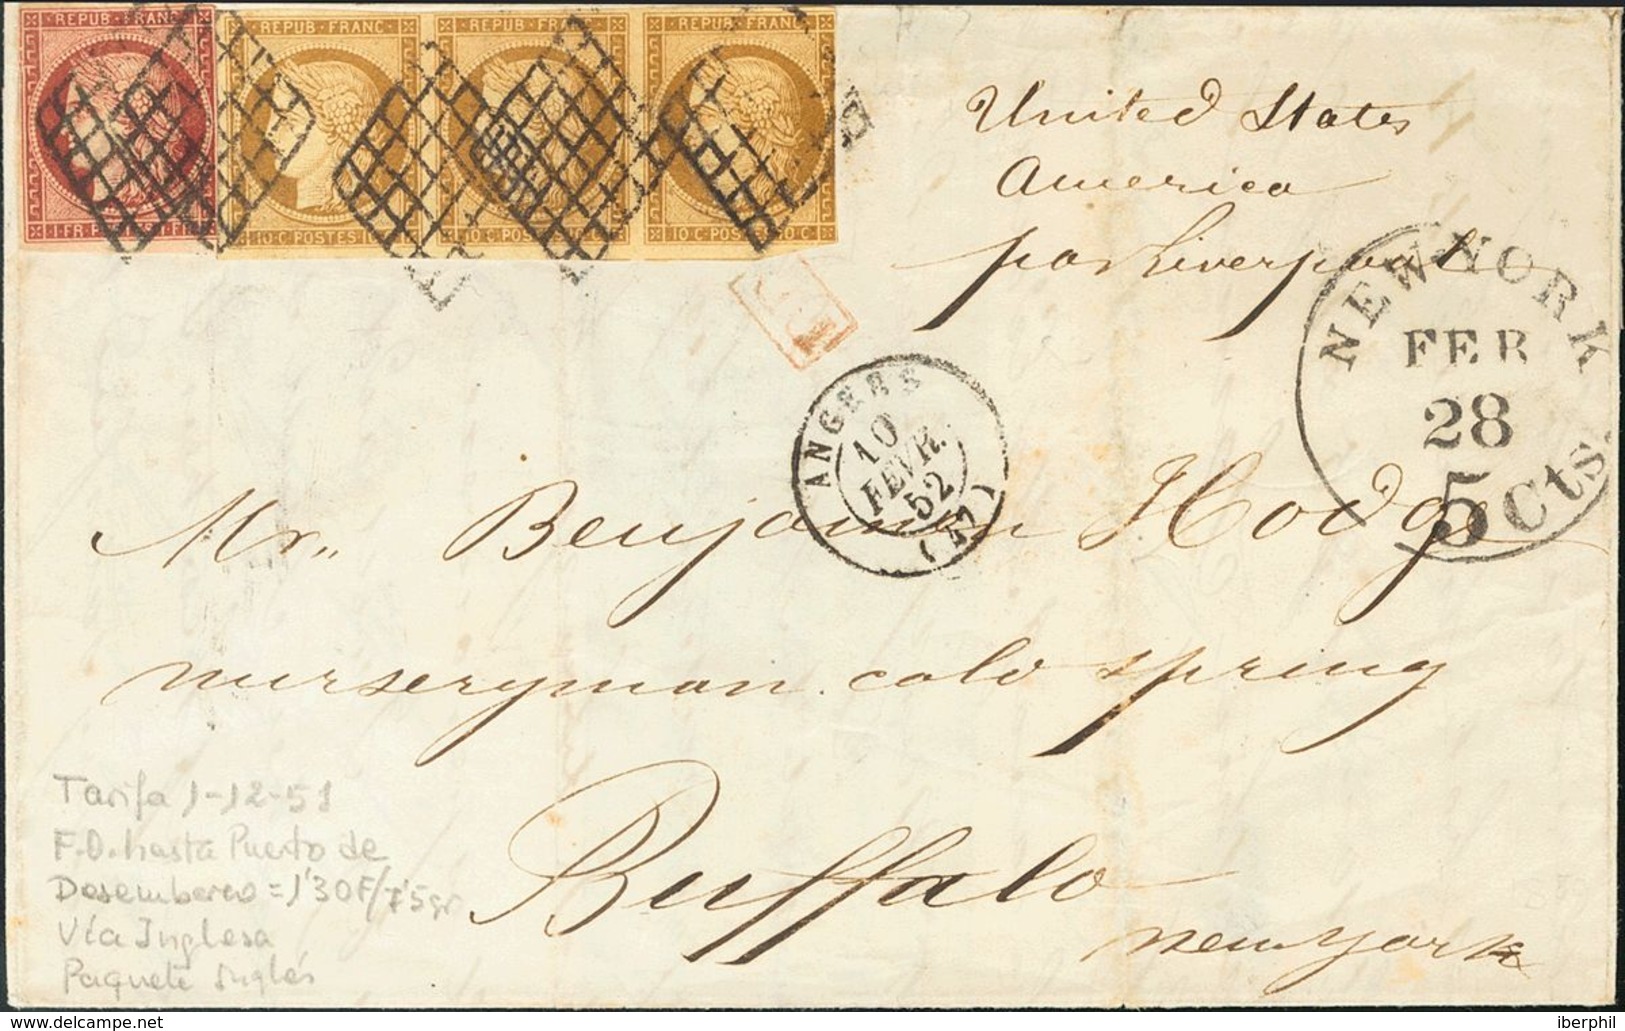 REPUB. FRANC.
REPUB. FRANC.
REPUB. FRANC.
REPUB. FRANC.
1. FR. POSTES 1. FR.
10. C. POSTES 1
10. C. POS
10. C. POSTES 10. C.
United States
America
par Liverpool
PD
NEW YORK
FEB
28
5 Cts.
ANGERS
10
FEVR.
52
(47)
Mr. Benjamin Hodge
nurseryman cold spring
Buffalo
new york
Tarifa 1-12-51
F.D. hasta Puerto de
Desembarco = 1'30F/7'5gr
Vía Inglesa
Paquete Inglés
delcampe.net
iberphil